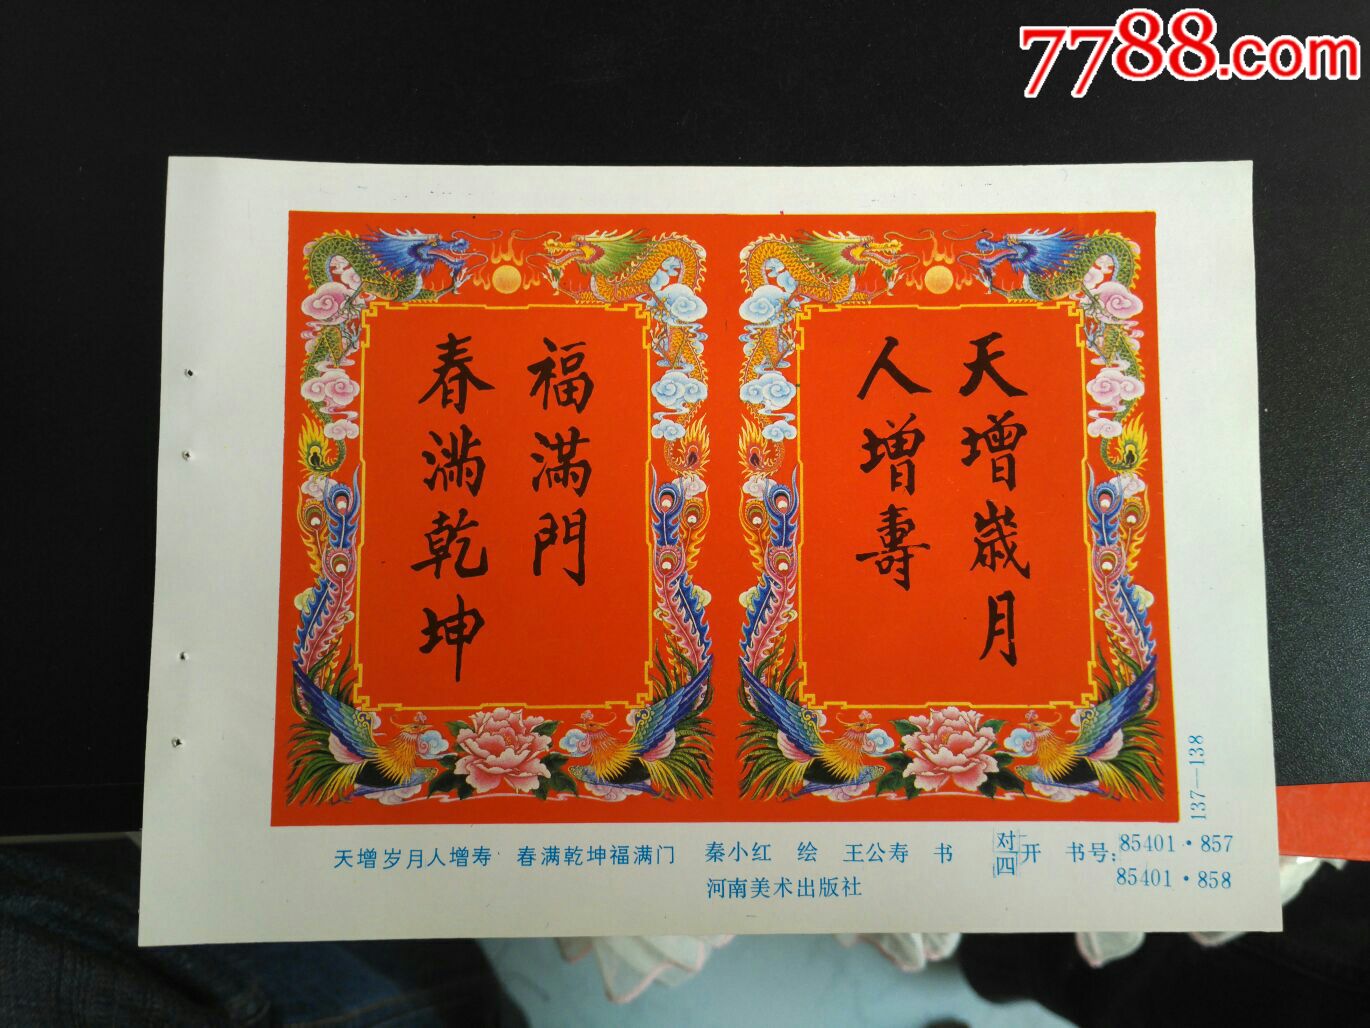 7788.com
天增歲月
人增壽
福滿門
春滿乾坤
137—138
天增岁月人增寿 春满乾坤福满门 秦小红 绘 王公寿 书 对四开 书号:85401·857
85401·858
河南美术出版社